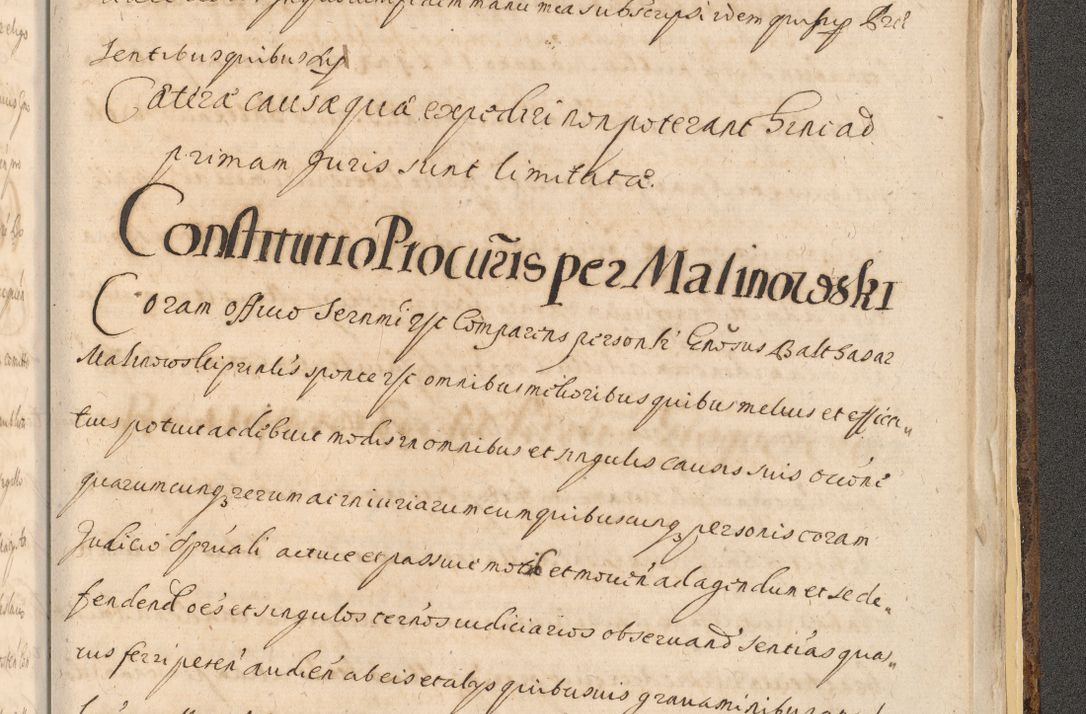 manu mea subscripsi idem qui supra Prae
sentibus quibus supra
Caterae causae quae expediri non poterant hinc ad
primam Juris sunt limitatae.
Constitutio Procuris per Malinowski
Coram officio Sernmi etc Comparens personlr Genosus Balthasar
Malinowski prinlis sponte etc omnibus melioribus quibus melius et effica„
tius potuit ac debuit modis in omnibus et singulis causis suis occone
quarumcunq3 rerum ac iniuriarum cum quibuscunq3 personis coram
Judicio spruali active et passive motis et moven ad agendum et se de„
fendend oes et singulos ternos iudiciarios observand sentias quas„
vis ferri peten audien ab eis et alys quibusvis gravaminibus